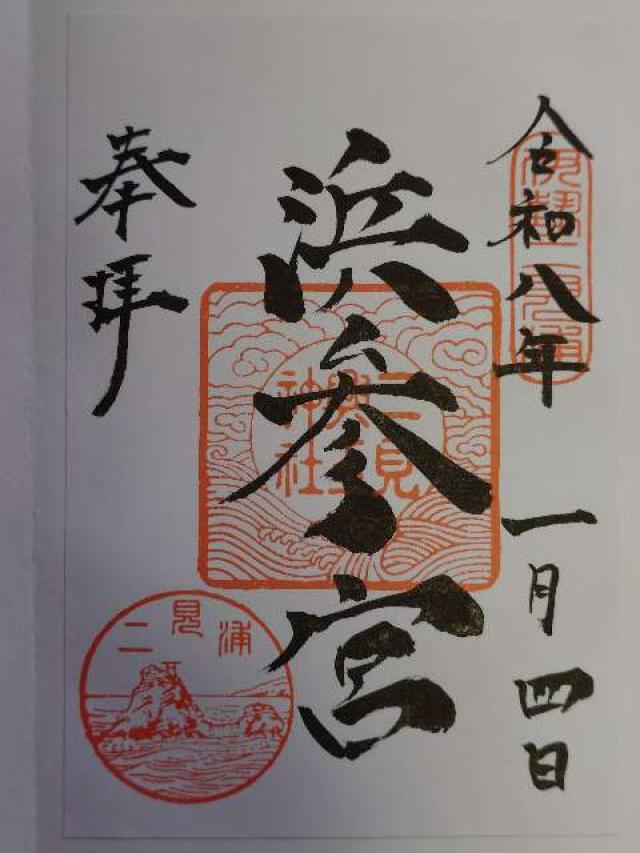 令和八年 一月四日
伊勢二見浦
浜参宮
二見
興玉
神社
奉拝
二見浦